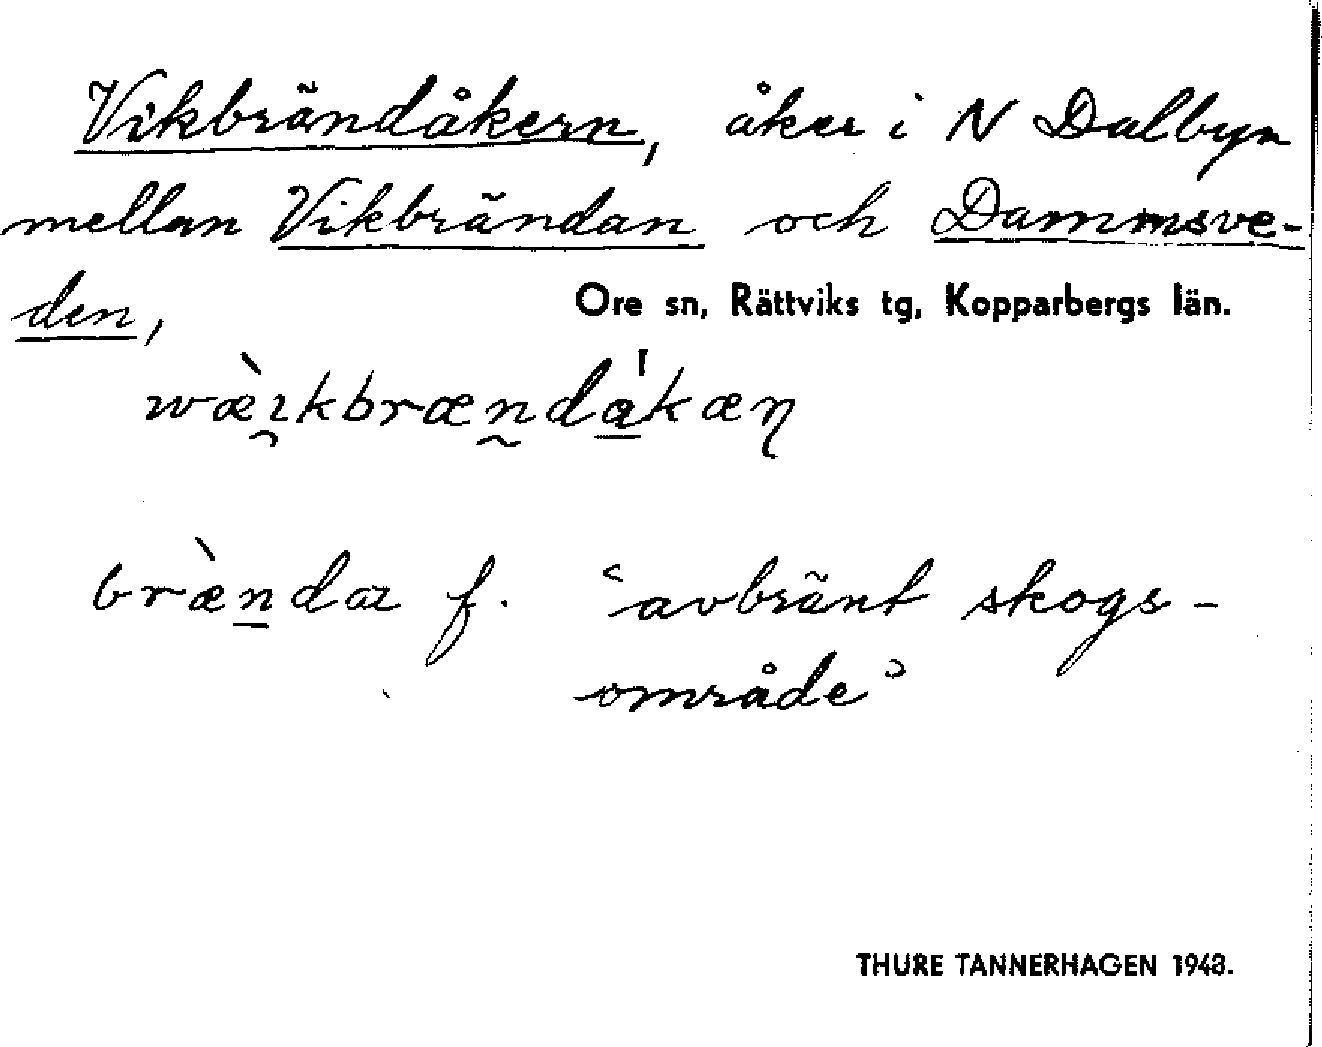 Vikbrändåkern, åker i N Dalbyn
mellan Vikbrändan och Dammsve-
den,
Ore sn, Rättviks tg, Kopparbergs län.
wæ̀ı̯kbræn̰da̱̍kæŋ
bræ̀ṉda f. "avbränt skogs-
område"
THURE TANNERHAGEN 1943.